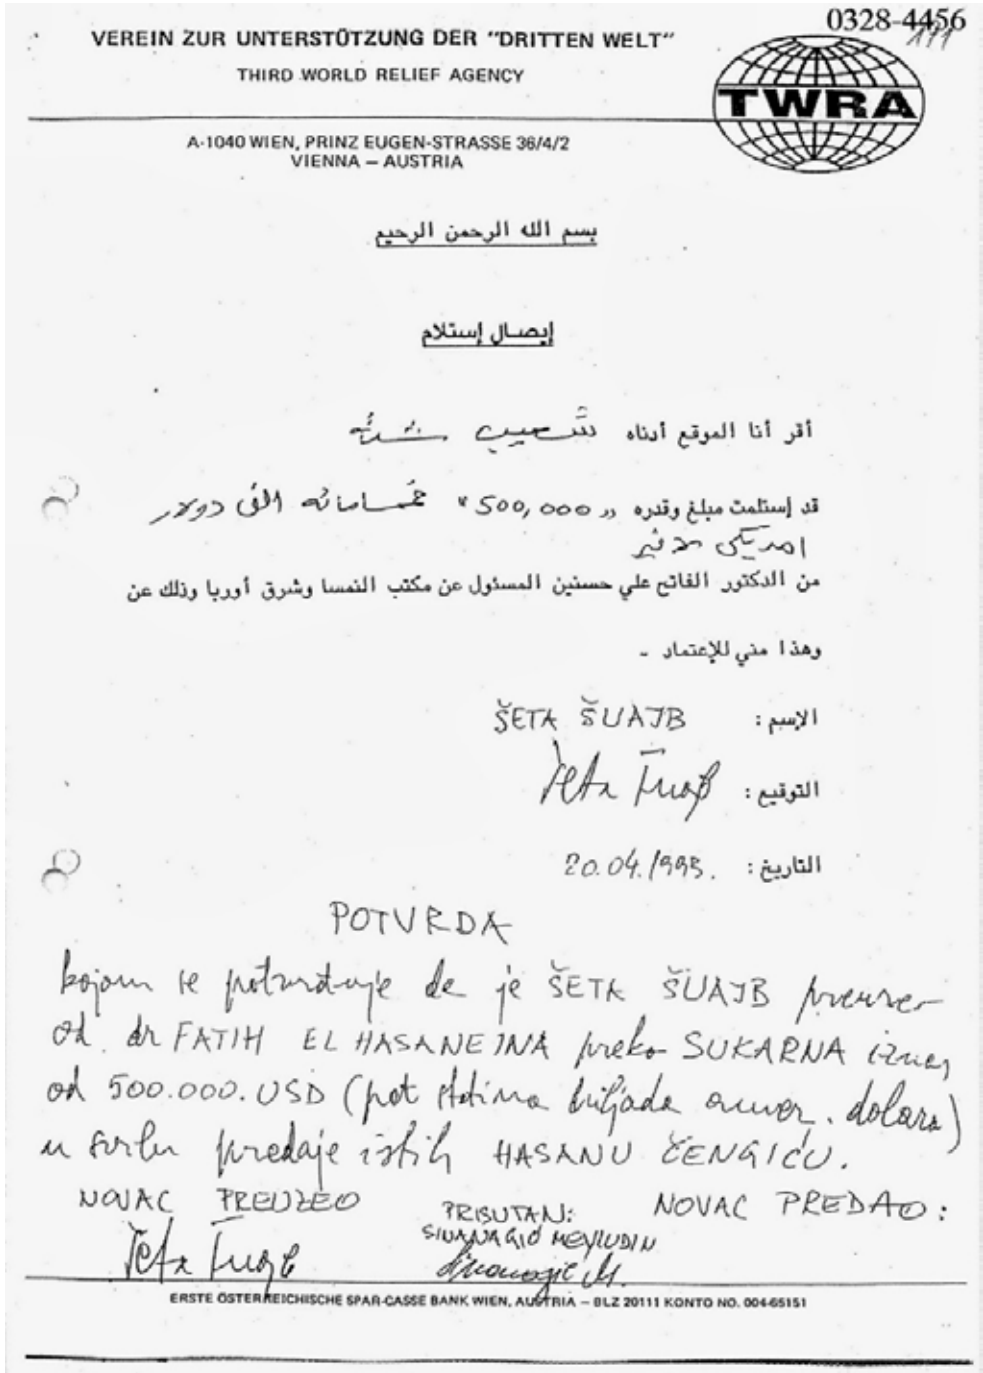 0328-4456
VEREIN ZUR UNTERSTÜTZUNG DER "DRITTEN WELT"
THIRD WORLD RELIEF AGENCY
TWRA
A-1040 WIEN, PRINZ EUGEN-STRASSE 36/4/2
VIENNA – AUSTRIA
بسم الله الرحمن الرحيم
إيصال إستلام
أقر أنا الموقع أدناه شعيب
قد إستلمت مبلغ وقدره "500,000" خمسمائه الف دولار
امريكى لا غير
من الدكتور الفاتح علي حسنين المسئول عن مكتب النمسا وشرق أوربا وذلك عن
وهذا مني للإعتماد -
الإسم : ŠETA ŠUAJB
التوقيع : Šeta Šuajb
التاريخ : 20.04.1993.
POTVRDA
kojom se potvrđuje da je ŠETA ŠUAJB preuzeo
od dr FATIH EL HASANEJNA preko SUKARNA iznos
od 500.000.USD (pet stotina hiljada amer. dolara)
u svrhu predaje istih HASANU ČENGIĆU.
NOVAC PREUZEO
PRISUTAN:
NOVAC PREDAO:
SINANAGIĆ MEVLUDIN
Šeta Šuajb
Sinanagić M.
ERSTE ÖSTERREICHISCHE SPAR-CASSE BANK WIEN, AUSTRIA – BLZ 20111 KONTO NO. 004-65151